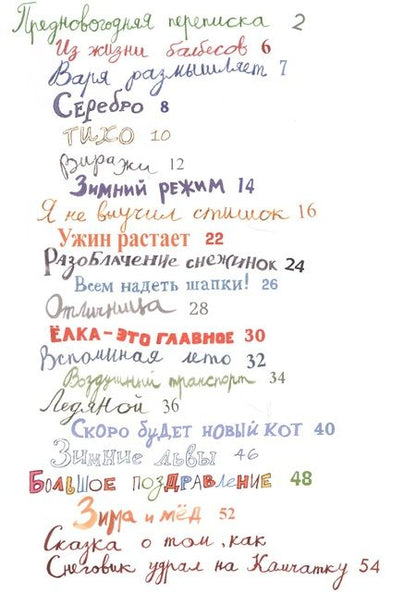 Предновогодняя переписка 2
Из жизни балбесов 6
Варя размышляет 7
Серебро 8
ТИХО 10
Виражи 12
Зимний режим 14
Я не выучил стишок 16
Ужин растает 22
Разоблачение снежинок 24
Всем надеть шапки! 26
Отличница 28
ЁЛКА - ЭТО ГЛАВНОЕ 30
Вспоминая лето 32
Воздушный транспорт 34
Ледяной 36
Скоро будет новый кот 40
Зимние львы 46
Большое поздравление 48
Зима и мёд 52
Сказка о том, как
Снеговик удрал на Камчатку 54